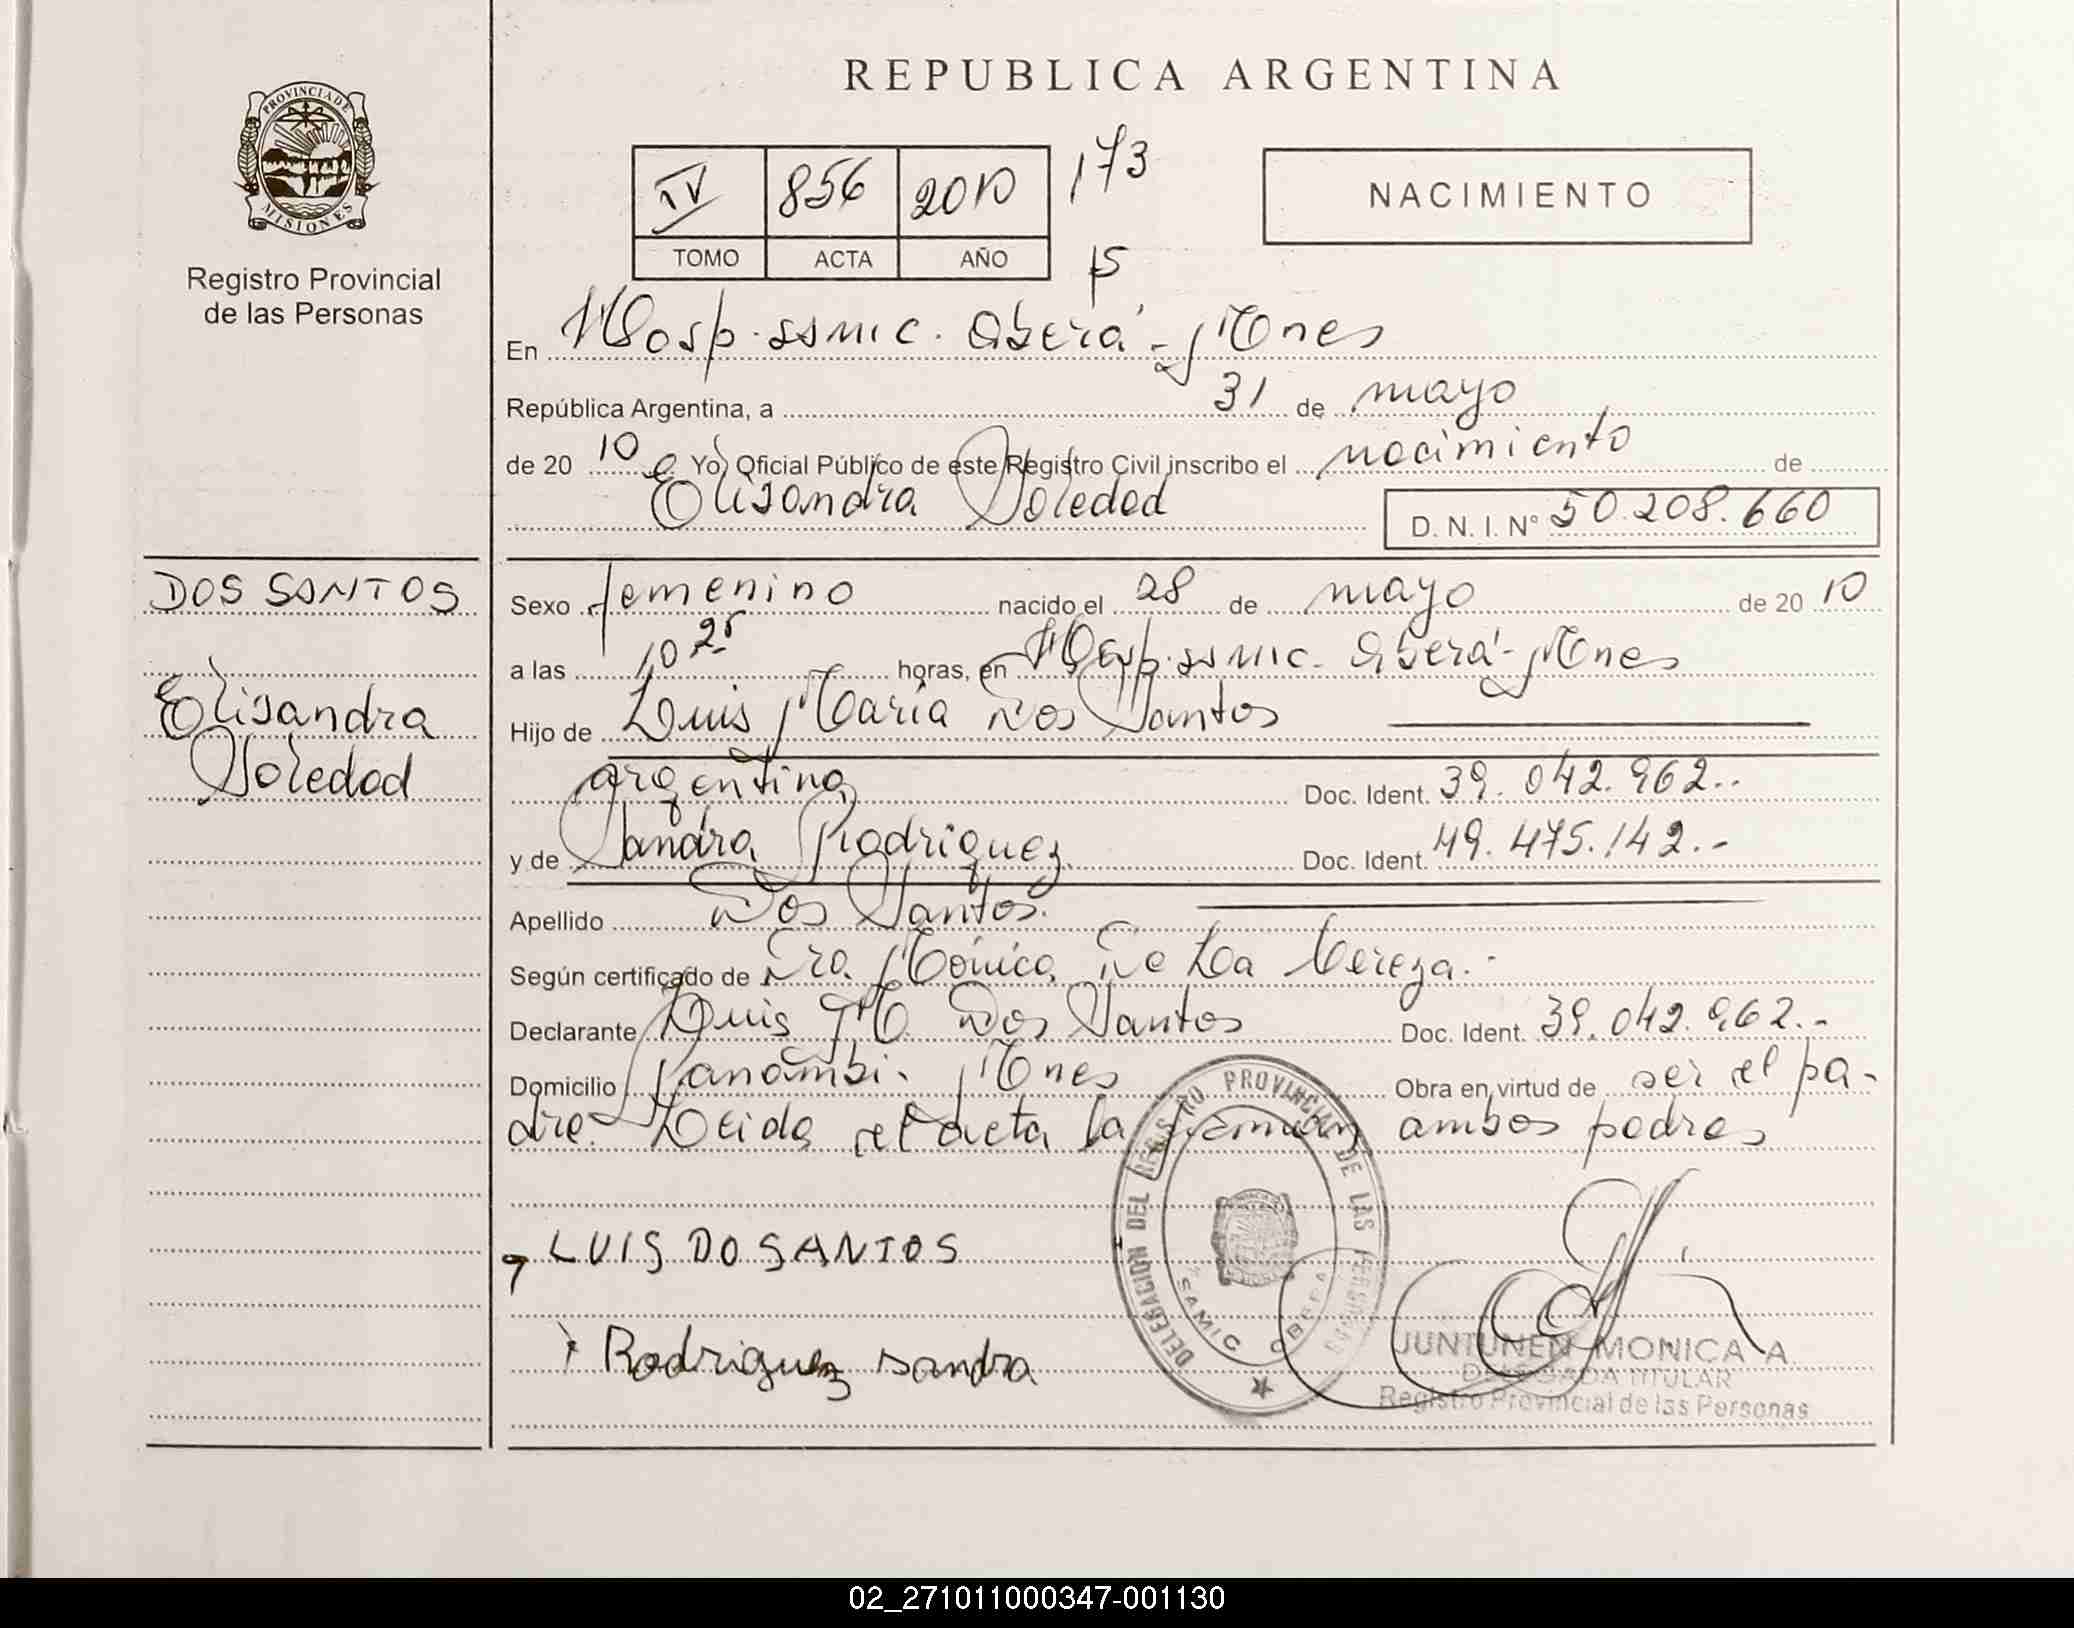 REPUBLICA ARGENTINA
PROVINCIA DE
MISIONES
Registro Provincial
de las Personas
IV 856 2010 173
TOMO ACTA AÑO 15
NACIMIENTO
En Hosp. SSMIC. Oberá - Mnes
República Argentina, a 31 de mayo
de 20 10 Yo, Oficial Público de este Registro Civil inscribo el nacimiento de
Elisandra Soledad
D. N. I. Nº 50.208.660
DOS SANTOS
Elisandra
Soledad
Sexo femenino nacido el 28 de mayo de 20 10
a las 10 25 horas, en Hosp. SSMIC. Oberá - Mnes
Hijo de Luis María Dos Santos
argentina Doc. Ident. 39.042.962..
y de Sandra Rodriguez Doc. Ident. 49.475.142.-
Apellido Dos Santos.
Según certificado de Dra. Mónica De La
Declarante Luis M. Dos Santos Doc. Ident. 39.042.962.-
Domicilio Panambi. Mnes Obra en virtud de ser el pa-
dre. Leida el acta la firman ambos padres
LUIS DO SANTOS
Rodriguez sandra
DELEGACION DEL REGISTRO PROVINCIAL DE LAS PERSONAS
SAMIC OBERA
JUNTUNEN MONICA A.
DELEGADA TITULAR
Registro Provincial de las Personas
02_271011000347-001130